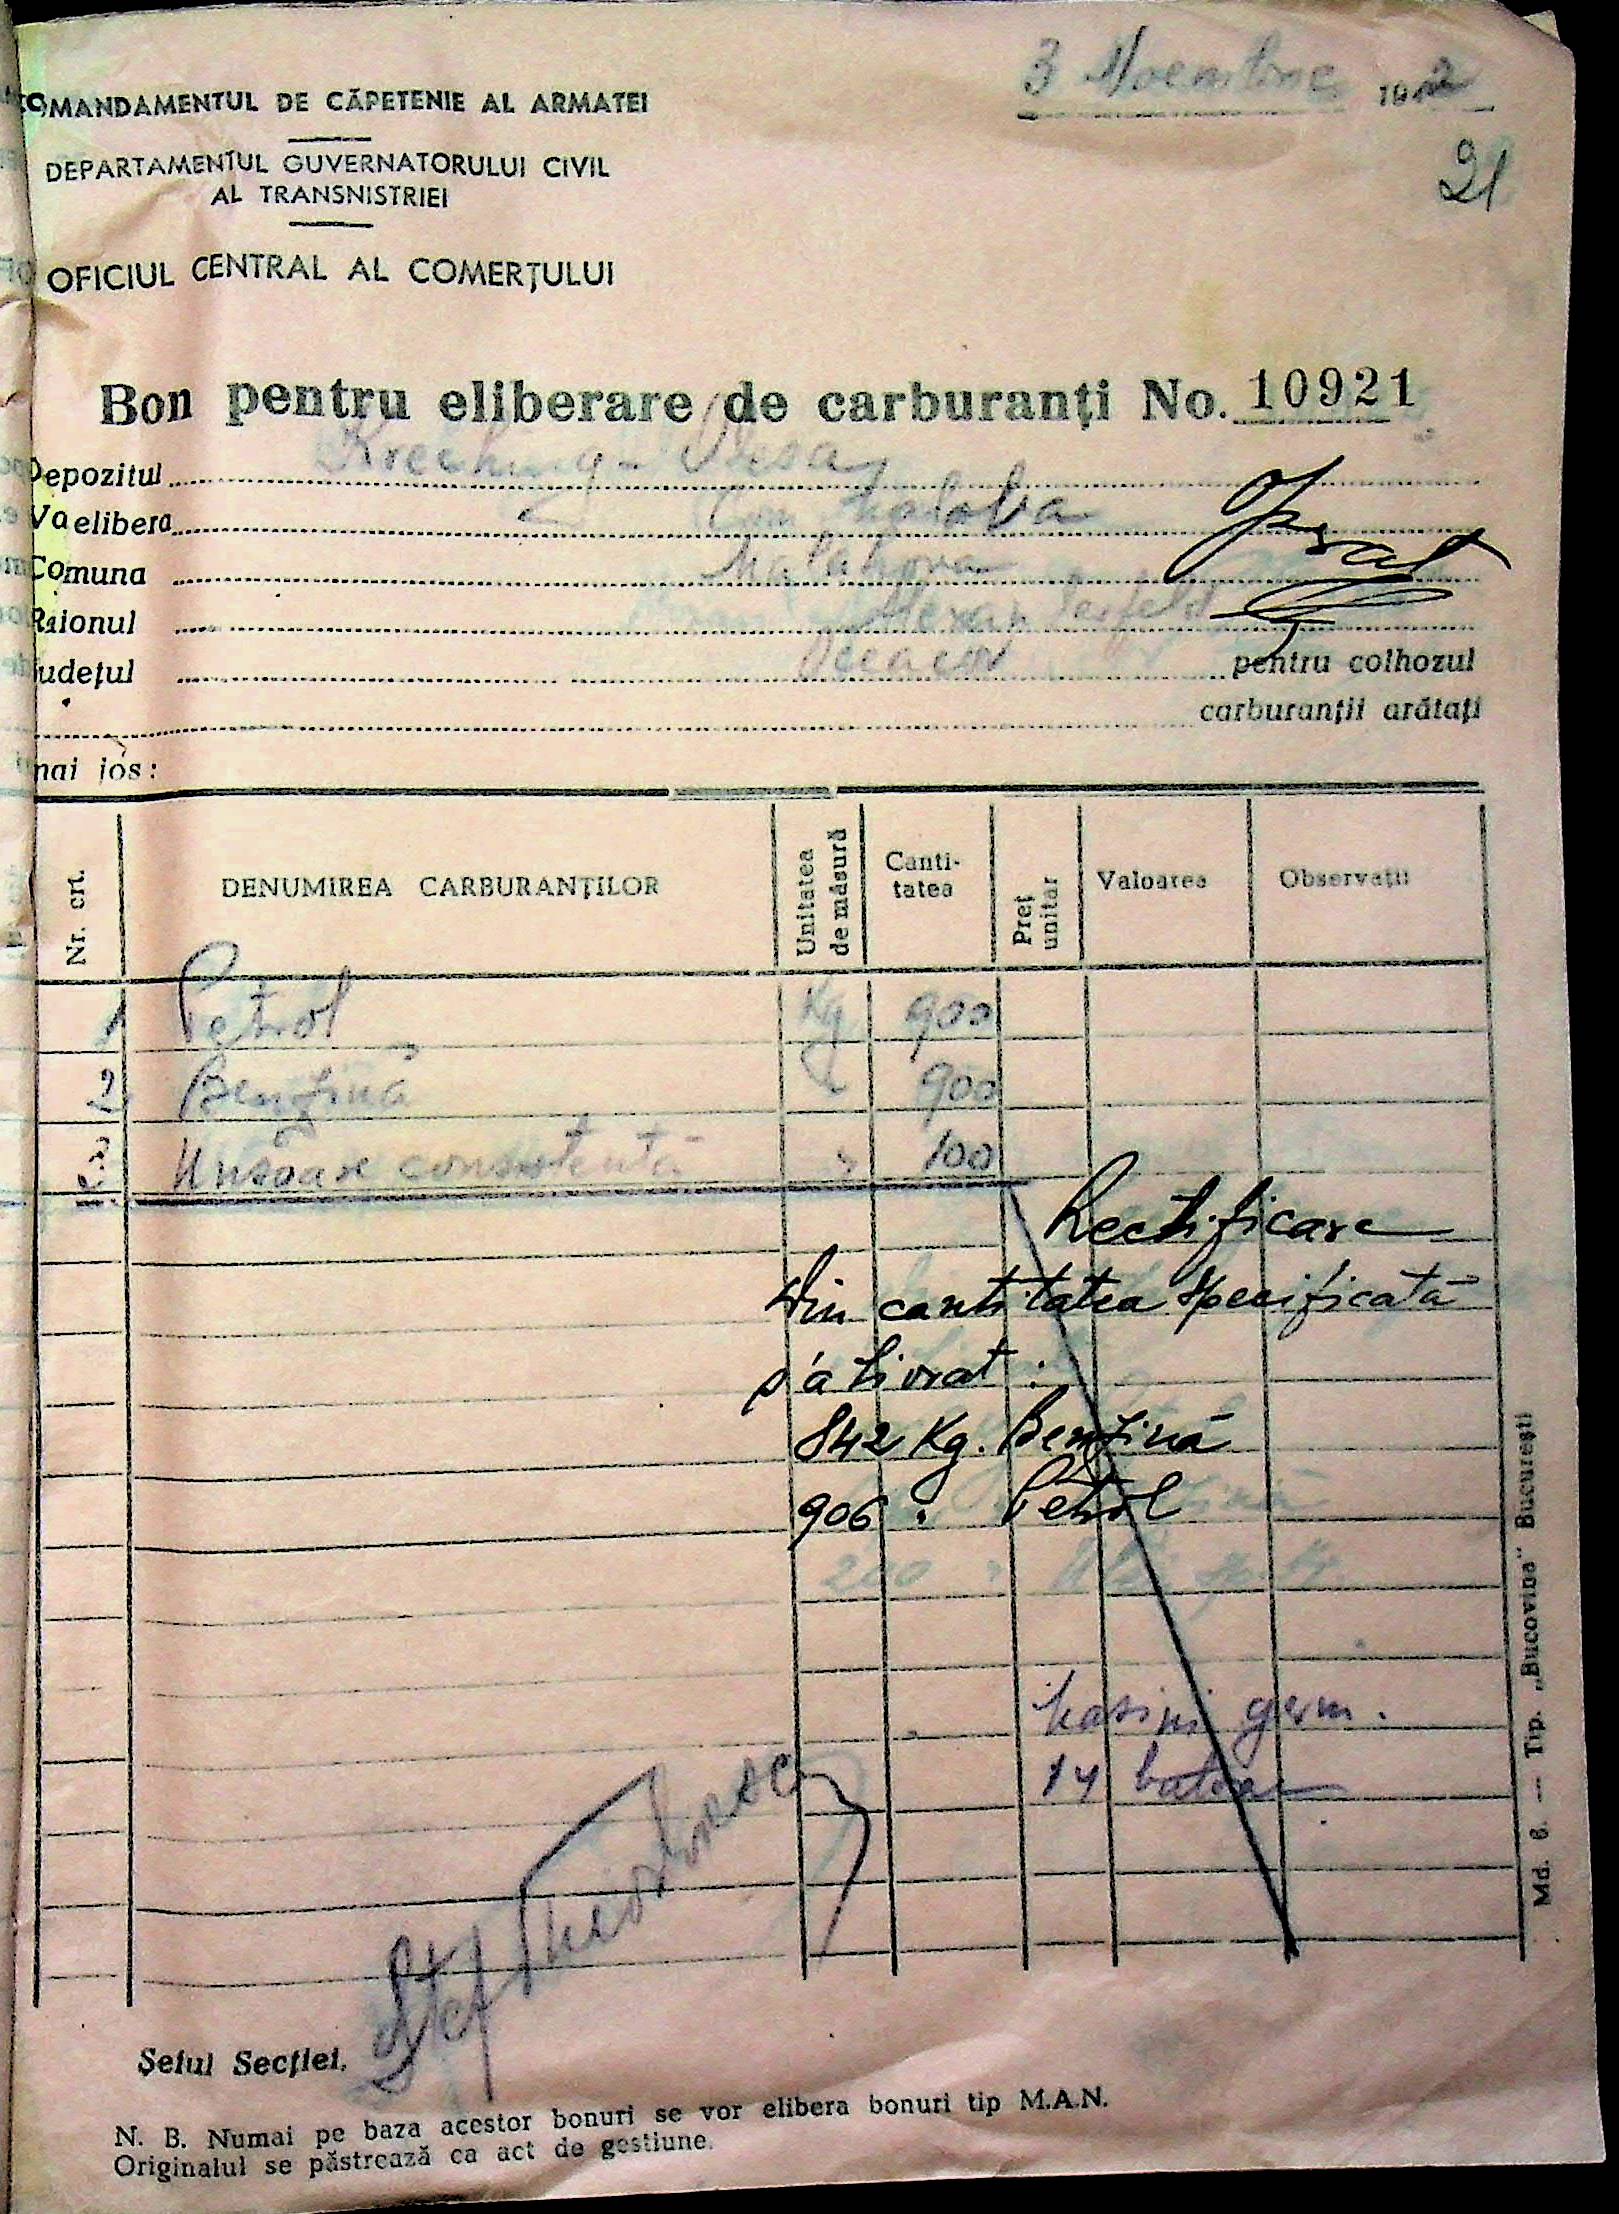 COMANDAMENTUL DE CĂPETENIE AL ARMATEI
3 Noembrie 1942
DEPARTAMENTUL GUVERNATORULUI CIVIL
AL TRANSNISTRIEI
21
OFICIUL CENTRAL AL COMERȚULUI
Bon pentru eliberare de carburanți No. 10921
Depozitul
Va elibera
Comuna
Raionul
Județul Oceacov pentru colhozul
carburanții arătați
mai jos:
Nr. crt. DENUMIREA CARBURANȚILOR Unitatea de măsură Canti-tatea Preț unitar Valoarea Observații
1 Petrol Kg 900
2 Benzină " 900
3 Unsoare consistentă " 100
Rectificare
Din cantitatea specificată
s'a livrat:
842 Kg. Benzină
906 " Petrol
200 "
germ.
14
Șeful Secției,
N. B. Numai pe baza acestor bonuri se vor elibera bonuri tip M.A.N.
Originalul se păstrează ca act de gestiune.
Md. 6. — Tip. „Bucovina" București